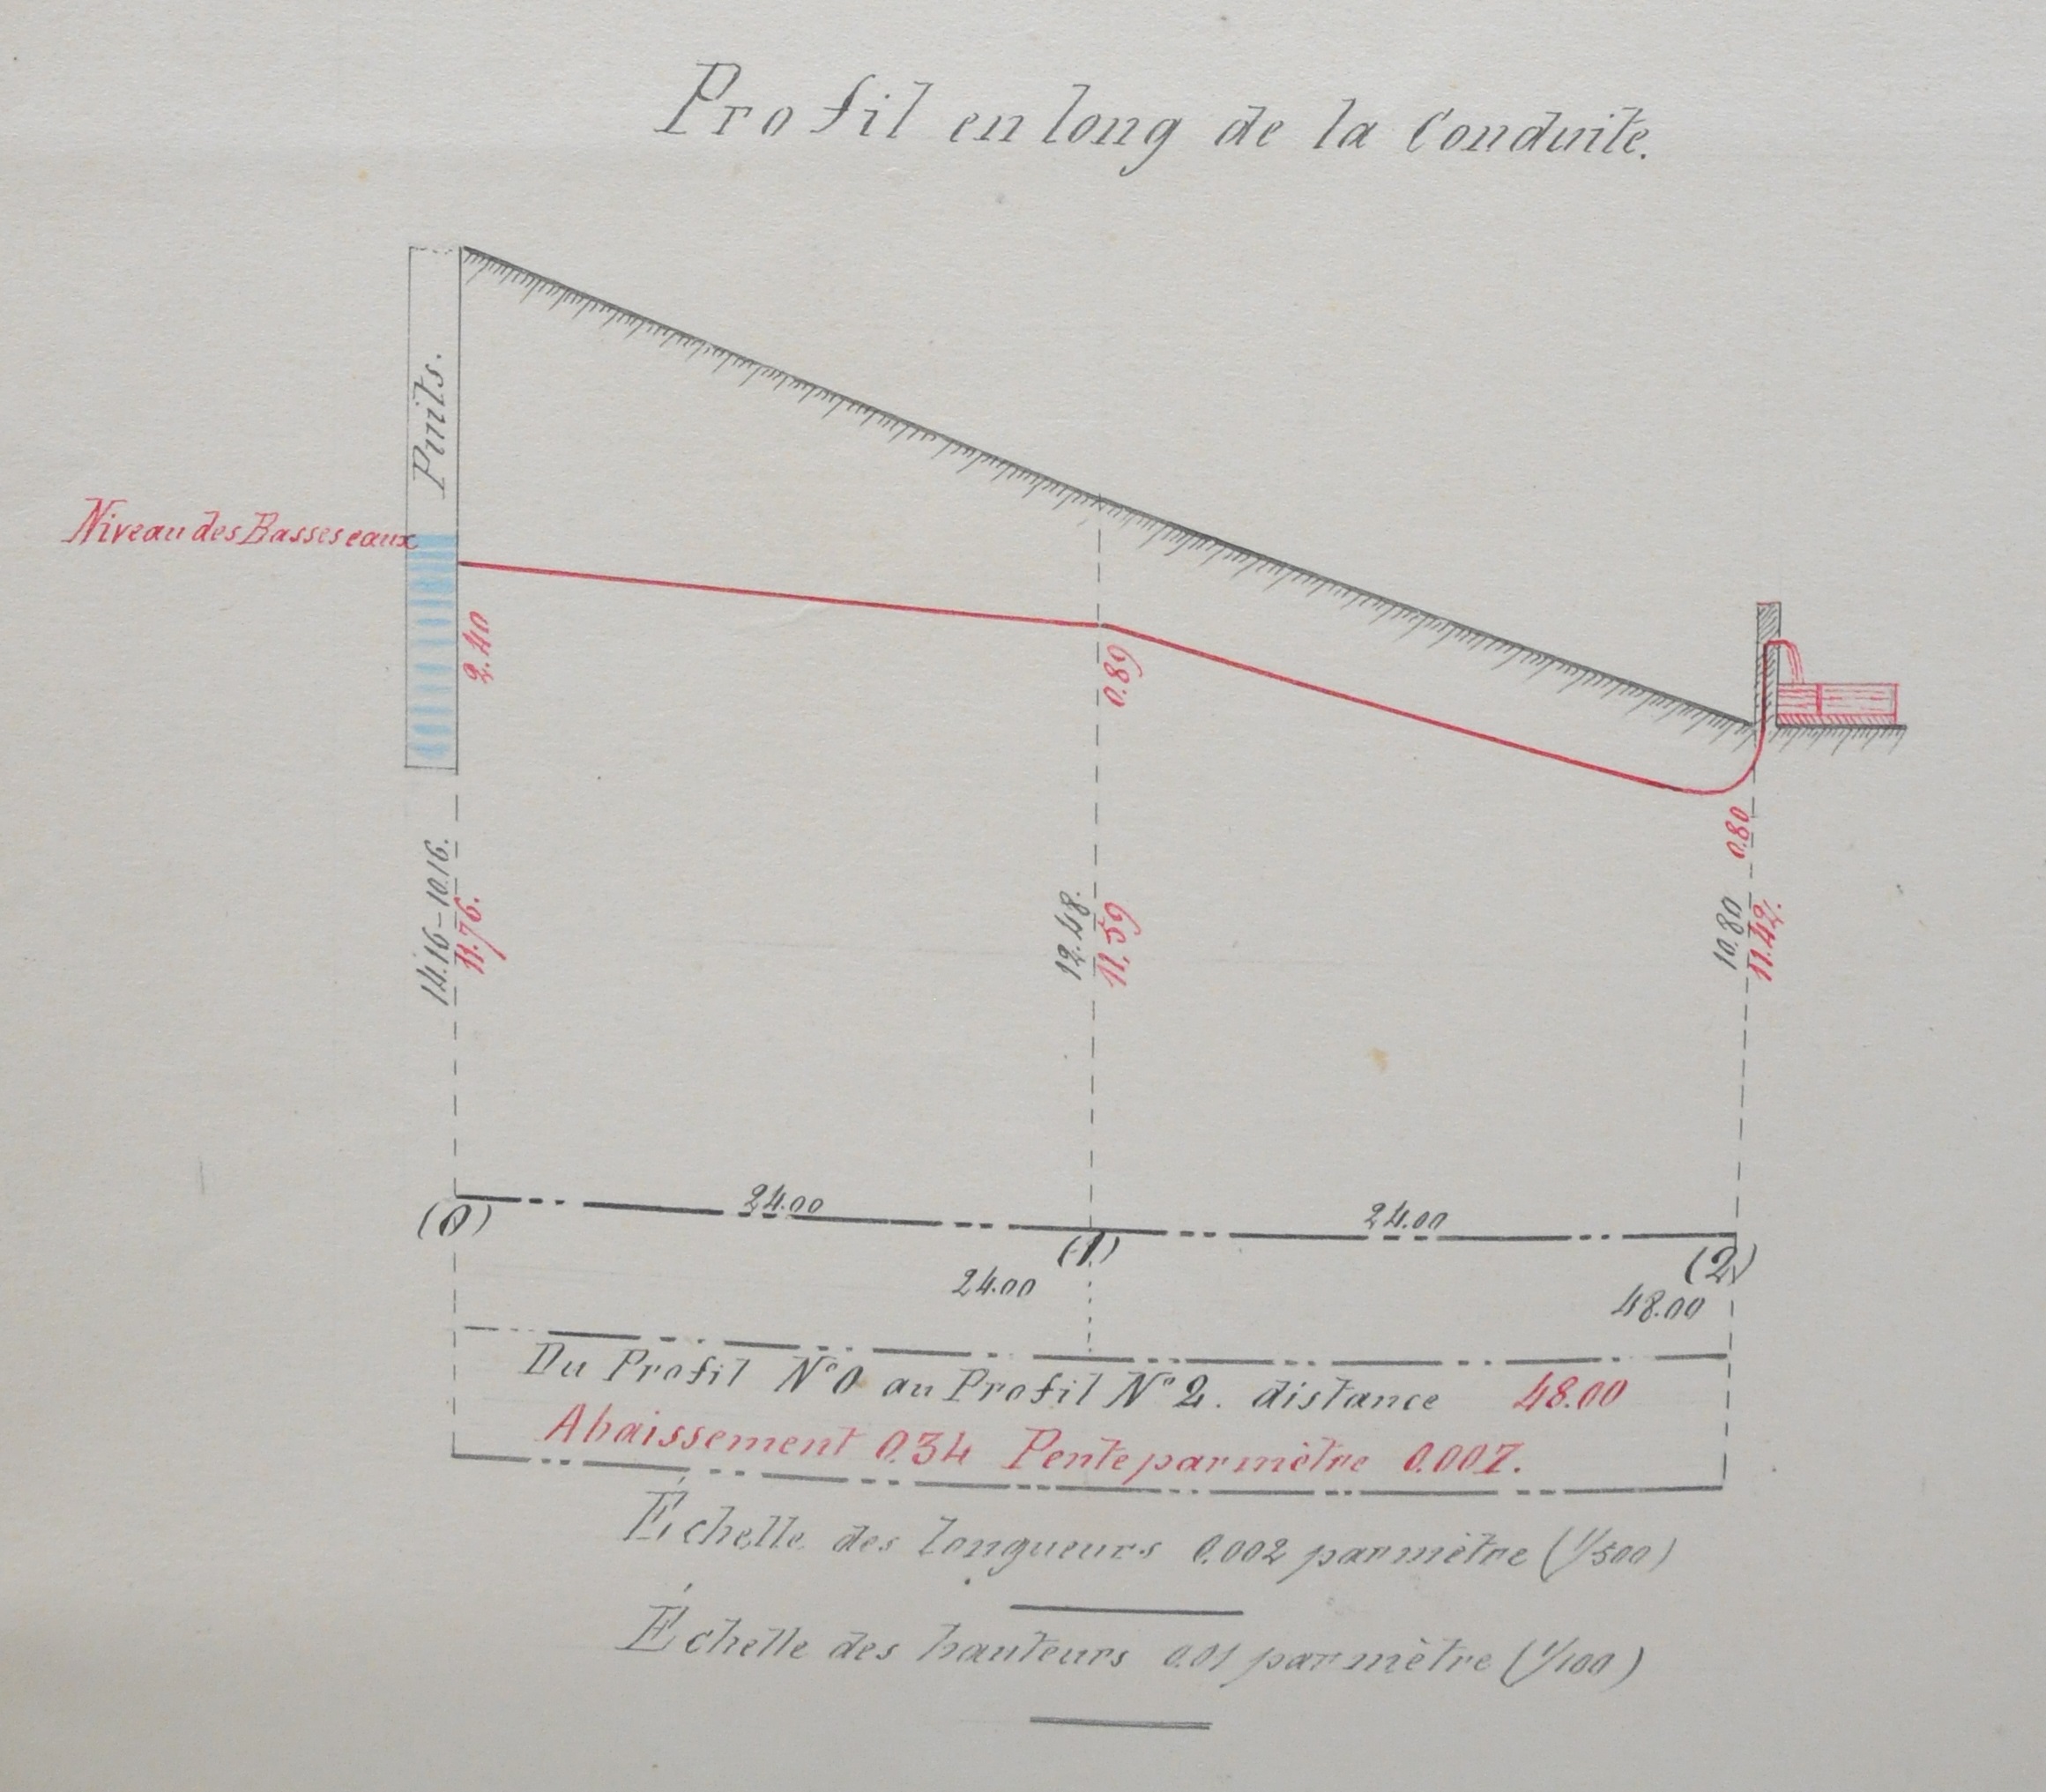 Profil en long de la Conduite.
Puits.
Niveau des Basses eaux
2.40
0.89
0.80
14.16 - 10.16.
11.76.
12.48.
11.59
10.80
11.42.
24.00
24.00
(0)
(1)
(2)
24.00
48.00
Du Profil N°0 au Profil N°2. distance 48.00
Abaissement 0.34 Pente par mètre 0.007.
Échelle des longueurs 0.002 par mètre (1/500)
Échelle des hauteurs 0.01 par mètre (1/100)